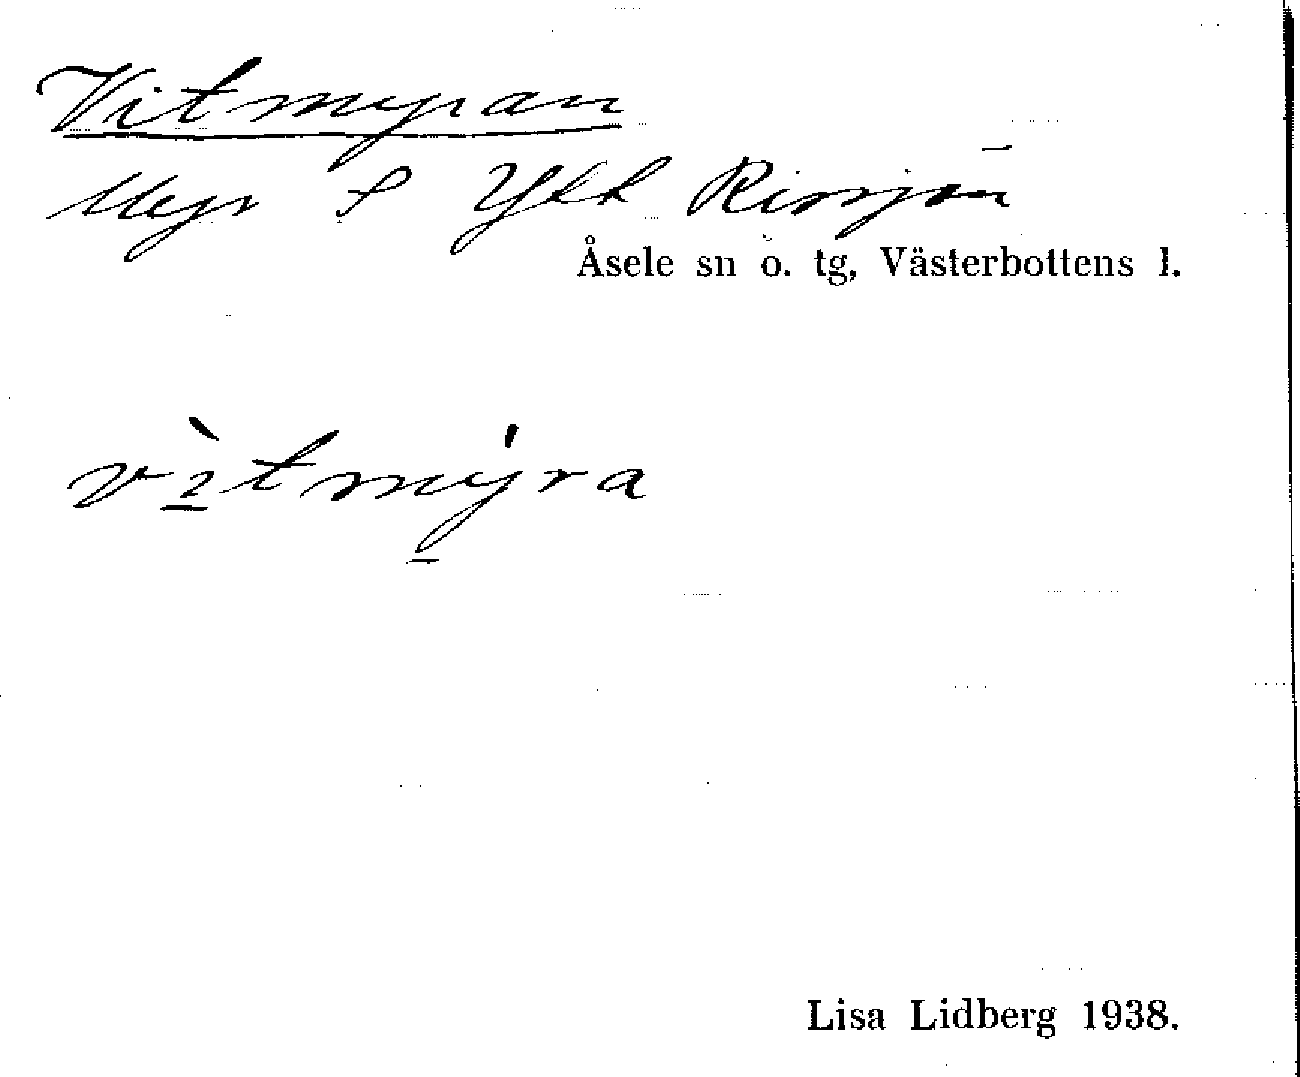 Vitmyran
Myr S Ytt Rissjön
Åsele sn o. tg, Västerbottens l.
vìtmýra
Lisa Lidberg 1938.